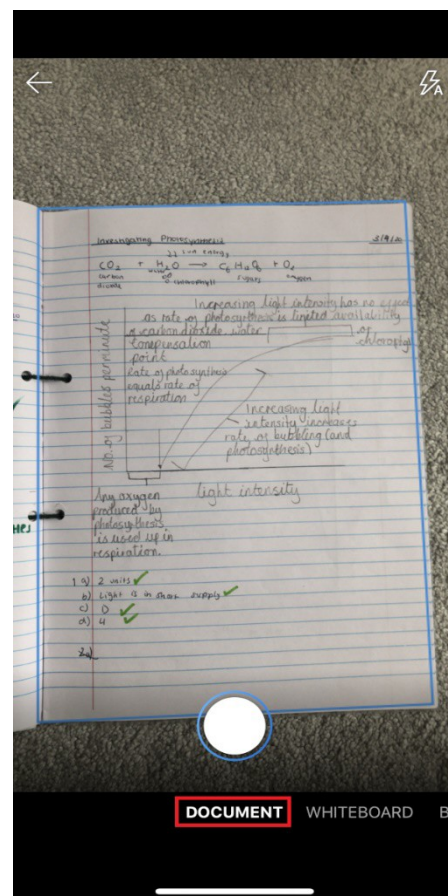 Investigating Photosynthesis
CO2 + H2O → C6 H12O6 + O2
carbon water chlorophyll sugars oxygen
dioxide
Increasing light intensity has no effect
as rate of photosynthesis is limited availability
of carbon dioxide, water or
chlorophyll
Compensation
point
Rate of photosynthesis
equals rate of
respiration
No. of bubbles per minute
Increasing light
intensity increases
rate of bubbling (and
photosynthesis)
light intensity
Any oxygen
produced by
photosynthesis
is used up in
respiration.
1 a) 2 units
b) Light is in short supply
c) 0
d) 4
2a)
DOCUMENT WHITEBOARD B